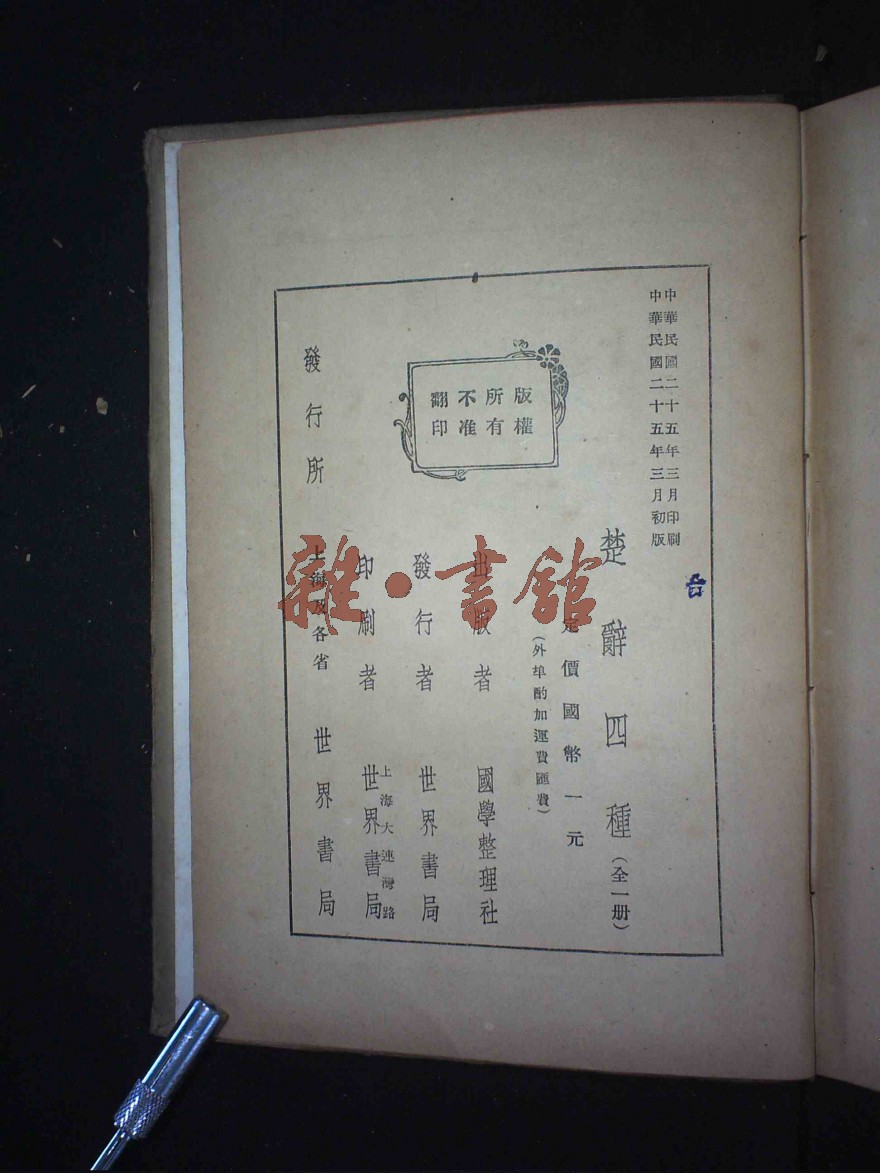 中華民國二十五年三月印刷
中華民國二十五年三月初版
楚辭四種（全一册）
定價國幣一元
（外埠酌加運費匯費）
版權
所有
不准
翻印
出版者 國學整理社
發行者 世界書局
上海大連灣路
印刷者 世界書局
發行所 上海及各省 世界書局
雜·書館